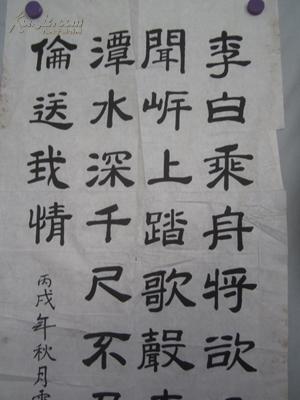 李白乘舟将欲
聞岍上踏歌聲
潭水深千尺不
倫送我情
丙戌年秋月